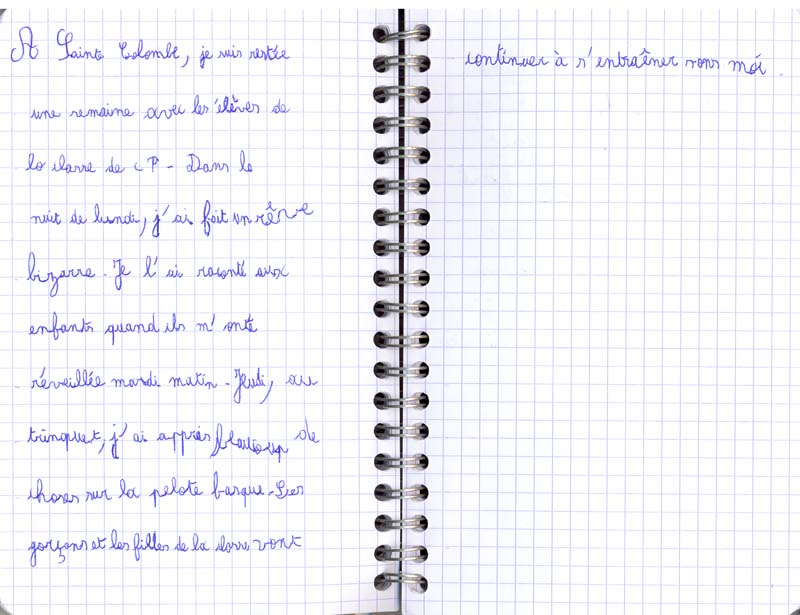 A Sainte Colombe, je suis restée
une semaine avec les élèves de
la classe de CP - Dans la
nuit de lundi, j'ai fait un rêve
bizarre - Je l'ai raconté aux
enfants quand ils m'onte
réveillée mardi matin - Jeudi, au
trinquet, j'ai appris beaucoup de
choses sur la pelote basque - Les
garçons et les filles de la classe vont
continuer à s'entraîner sans moi